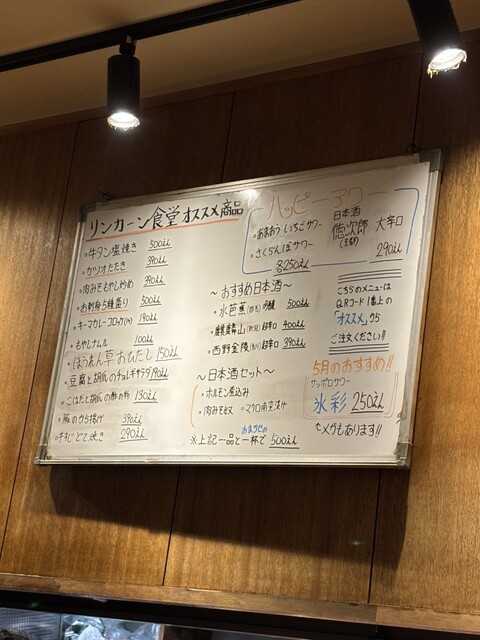 リンカーン食堂オススメ商品
・牛タン塩焼き 500えん
・カツオたたき 390えん
・肉みそもやし炒め 390えん
・お刺身5種盛り 500えん
・キーマカレーコロッケ(1ヶ) 190えん
・もやしナムル 100えん
・ほうれん草おひたし 150えん
・豆腐と胡瓜のチョレギサラダ 190えん
・こはだと胡瓜の酢の物 190えん
・豚のから揚げ 390えん
どて焼き 290えん
ハッピーアワー
・あまおういちごサワー
・さくらんぼサワー
各250えん
日本酒
惣次郎 大辛口
(京都)
290えん
〜おすすめ日本酒〜
・水芭蕉(群馬)吟醸 500えん
山(新潟)超辛口 400えん
・西野金陵(香川)超辛口 390えん
〜日本酒セット〜
・ホルモン煮込み
・肉みそ奴 ・マグロ南蛮漬け
おまかせの
※上記一品と一杯で 500えん
こちらのメニューは
QRコード1番上の
「オススメ」から
ご注文ください!!
5月のおすすめ!!
サッポロサワー
氷彩 250えん
〆メガもあります!!